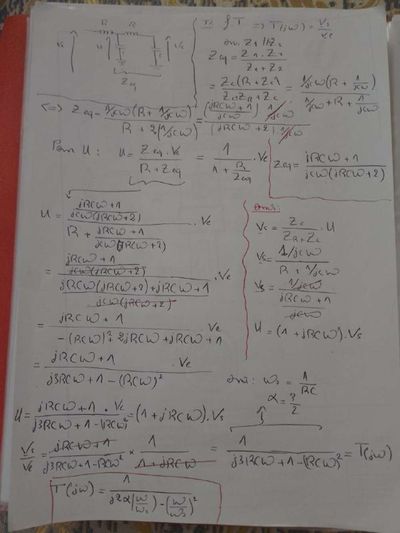 R R
Ve U C C Vs
Zeq
T(jω) = Vs/Ve
ona: Z1//Z2
Zeq = Z1.Z2/(Z1+Z2)
= Zc(R+Zc)/(Zc+R+Zc) = 1/jcω(R+1/jcω)/(1/jcω+R+1/jcω)
<=> Zeq = 1/jcω(R+1/jcω)/(R+2(1/jcω)) = ((jRCω+1)/jcω) 1/jcω/((jRCω+2) 1/jcω)
Zeq = (jRCω+1)/(jcω(jRCω+2))
Pour U: U = Zeq.Ve/(R+Zeq) = 1/(1+R/Zeq) .Ve
U = ((jRCω+1)/(jcω(jRCω+2)))/(R+(jRCω+1)/(jcω(jRCω+2))) .Ve
= ((jRCω+1)/(jcω(jRCω+2)))/((jRCω(jRCω+2)+jRCω+1)/(jcω(jRCω+2))) .Ve
= (jRCω+1)/(-(RCω)²+2jRCω+jRCω+1) Ve
= (jRCω+1)/(j3RCω+1-(RCω)²) .Ve
Vs = Zc/(ZR+Zc) .U
Vs = (1/jcω)/(R+1/jcω)
Vs = (1/jcω)/((jRCω+1)/jcω)
U = (1+jRCω).Vs
ona: ω0 = 1/RC
α = 3/2
U = (jRCω+1 .Ve)/(j3RCω+1-(RCω)²) = (1+jRCω).Vs
Vs/Ve = (jRCω+1)/(j3RCω+1-(RCω)²) × 1/(1+jRCω) = 1/(j3RCω+1-(RCω)²) = T(jω)
T(jω) = 1/(j2α(ω/ω0)-(ω/ω0)²)